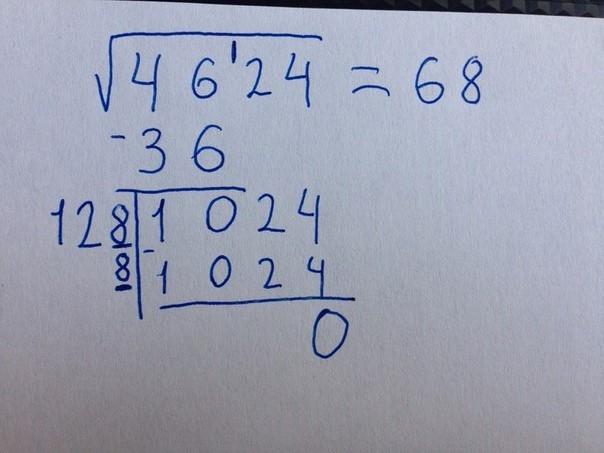 √46'24 = 68
-36
128 | 1024
8 | -1024
0